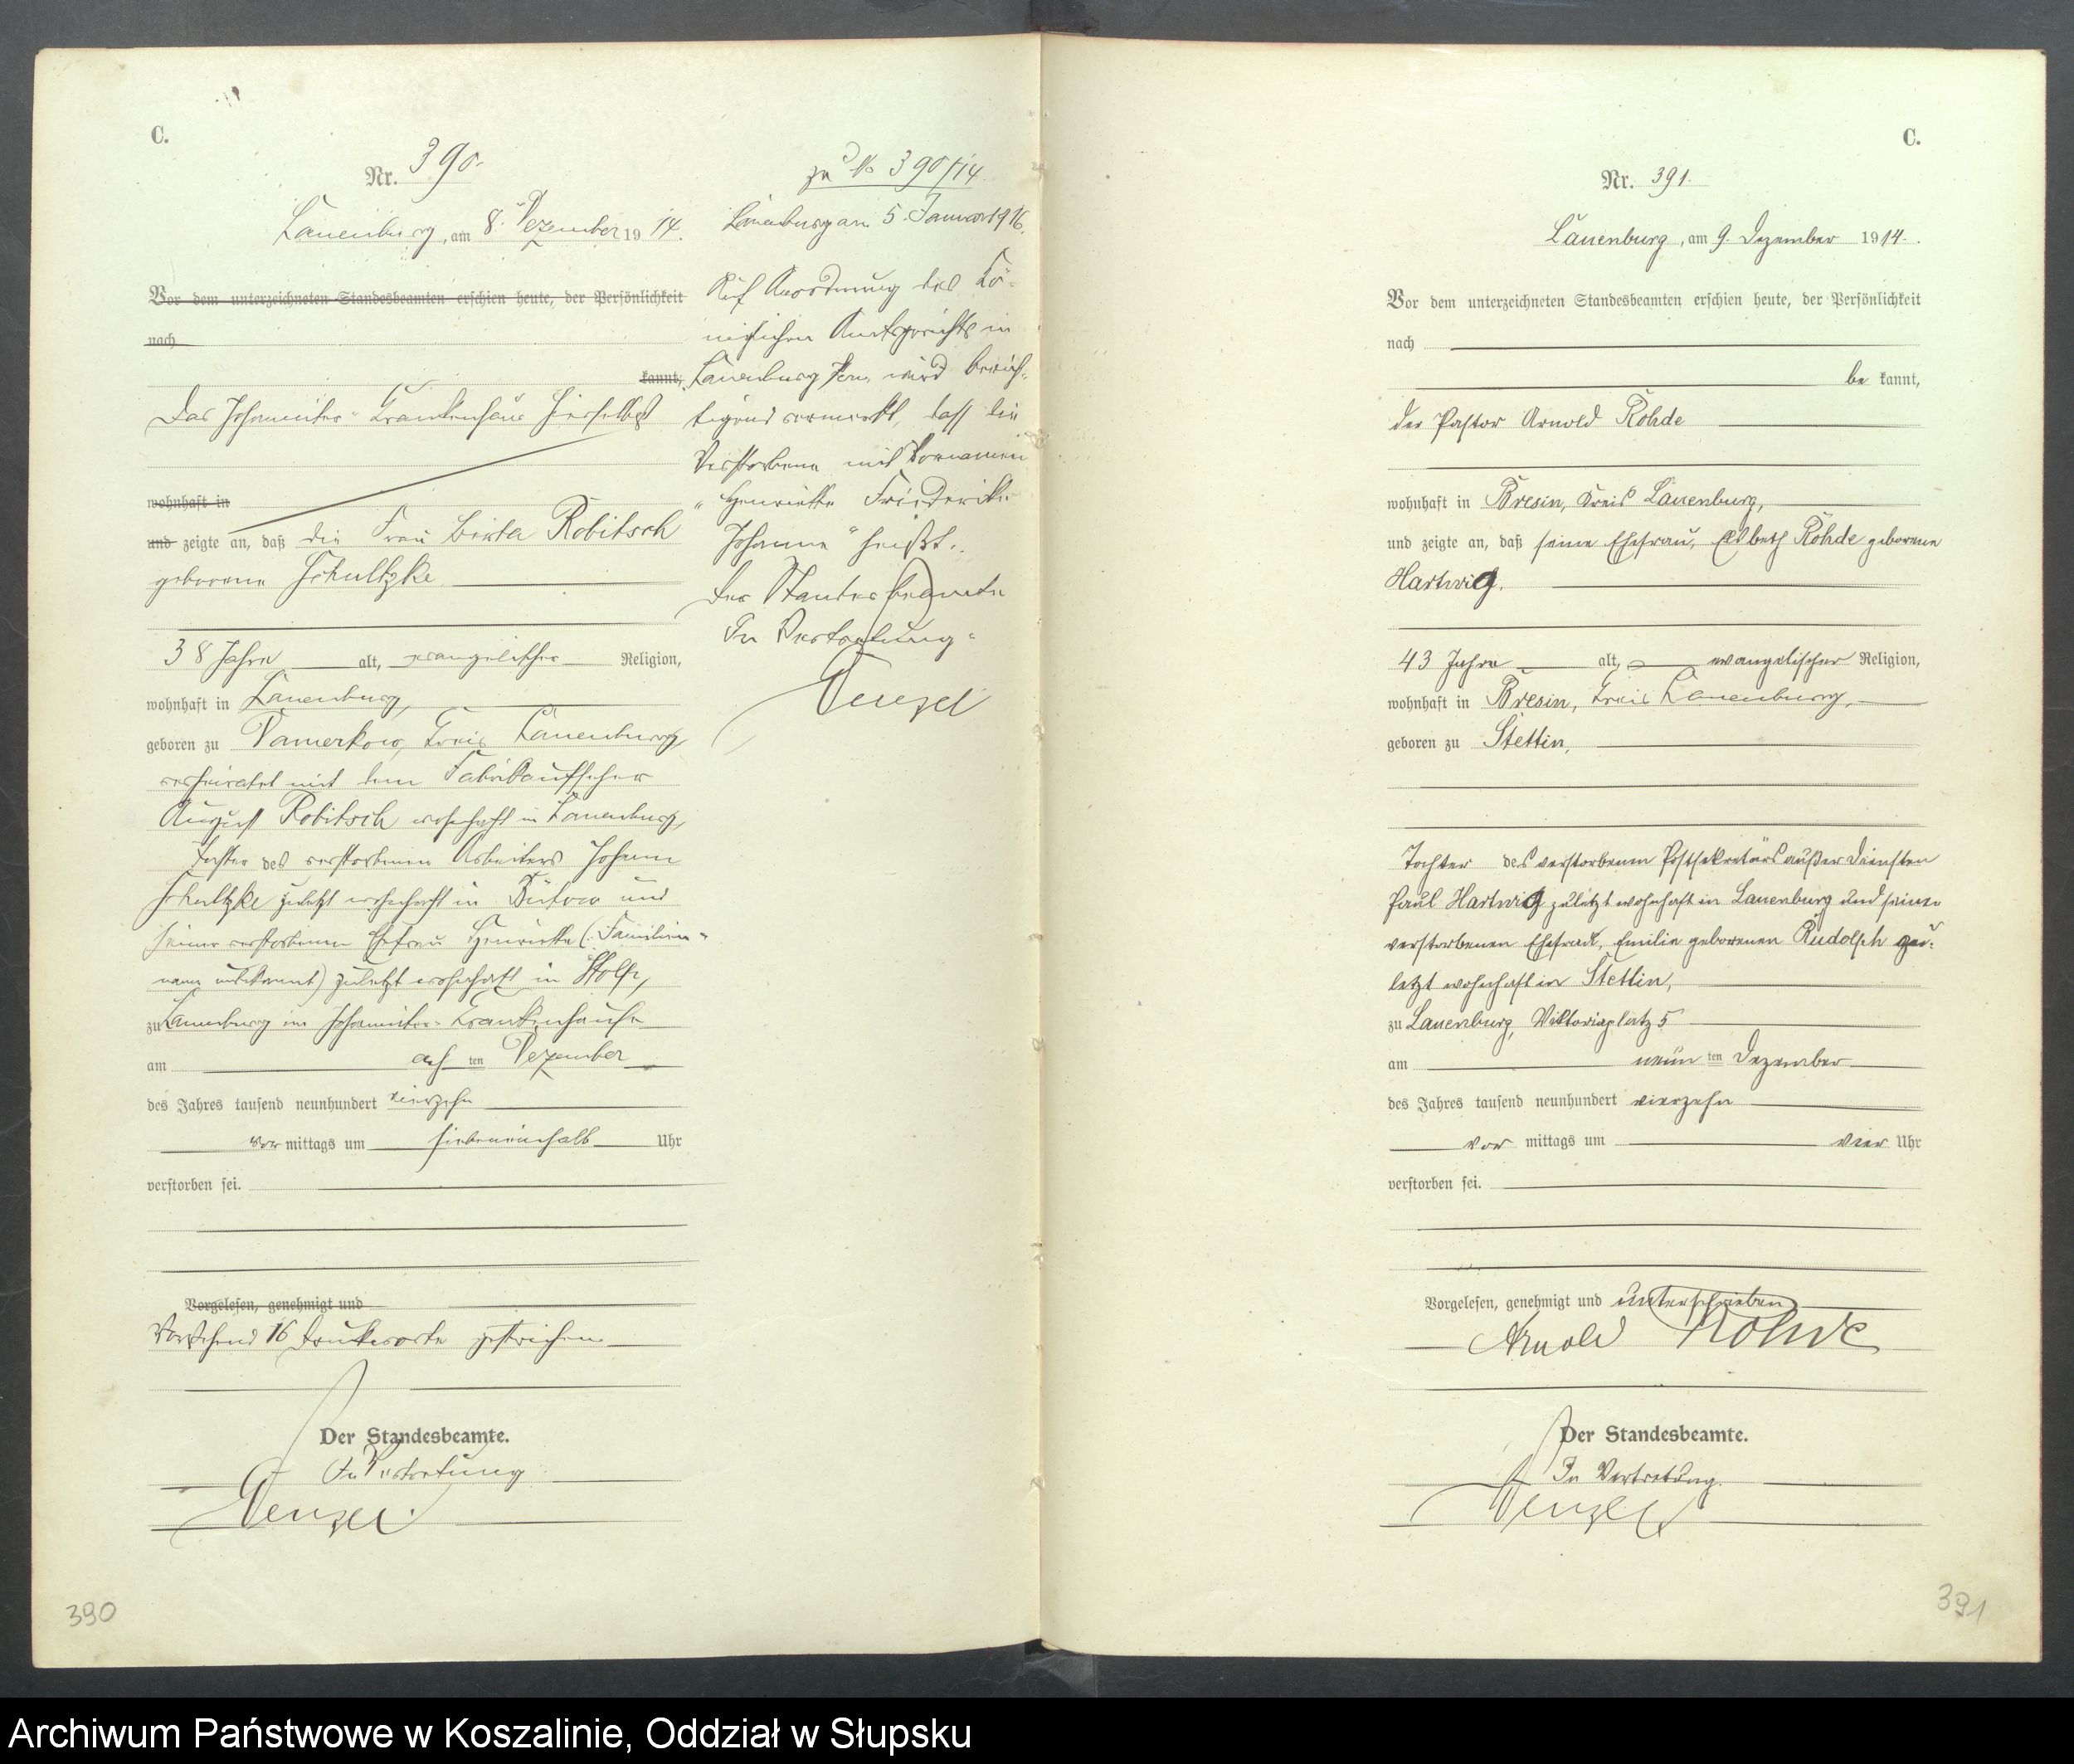 C.
Nr. 390.
Lauenburg, am 8. Dezember 19 14.
Vor dem unterzeichneten Standesbeamten erschien heute, der Persönlichkeit
nach
kannt,
Das Johanniter-Krankenhaus hierselbst
wohnhaft in
und zeigte an, daß die Frau Robitsch
geborene Schultzke
38 Jahre alt, evangelischer Religion,
wohnhaft in Lauenburg,
geboren zu Vamerkow, Kreis Lauenburg,
verheiratet mit dem Fabrikaufseher
August Robitsch wohnhaft in Lauenburg,
Tochter des verstorbenen Arbeiters Johann
Schultzke zuletzt wohnhaft in Bütow und
seiner verstorbenen Ehefrau Henriette (Familien-
name unbekannt) zuletzt wohnhaft in Stolp,
zu Lauenburg im Johanniter-Krankenhause
am acht ten Dezember
des Jahres tausend neunhundert vierzehn
vor mittags um siebeneinhalb Uhr
verstorben sei.
Vorgelesen, genehmigt und
Vorstehend 16 Druckworte gestrichen.
Der Standesbeamte.
In Vertretung
Wenzel
390
zu No 390/14
Lauenburg am 5. Januar 1916.
Auf Anordnung des Kö-
niglichen Amtsgerichts in
Lauenburg Pom. wird berich-
tigend vermerkt, dass die
Verstorbene mit Vornamen
"Henriette Friederike
Johanna" heißt.
Der Standesbeamte
In Vertretung.
Wenzel
C.
Nr. 391.
Lauenburg, am 9. Dezember 1914.
Vor dem unterzeichneten Standesbeamten erschien heute, der Persönlichkeit
nach
be kannt,
der Pastor Arnold Rohde
wohnhaft in Bresin, Kreis Lauenburg,
und zeigte an, daß seine Ehefrau, Elsbeth Rohde geborene
Hartwig.
43 Jahre alt, evangelischer Religion,
wohnhaft in Bresin, Kreis Lauenburg,
geboren zu Stettin,
Tochter des verstorbenen Postsekretärs außer Diensten
Paul Hartwig zuletzt wohnhaft in Lauenburg und seiner
verstorbenen Ehefrau, Emilie geborenen Rudolph zu-
letzt wohnhaft in Stettin,
zu Lauenburg, Viktoriaplatz 5
am neun ten Dezember
des Jahres tausend neunhundert vierzehn
vor mittags um vier Uhr
verstorben sei.
Vorgelesen, genehmigt und unterschrieben
Arnold Rohde
Der Standesbeamte.
In Vertretung.
Wenzel
391
Archiwum Państwowe w Koszalinie, Oddział w Słupsku